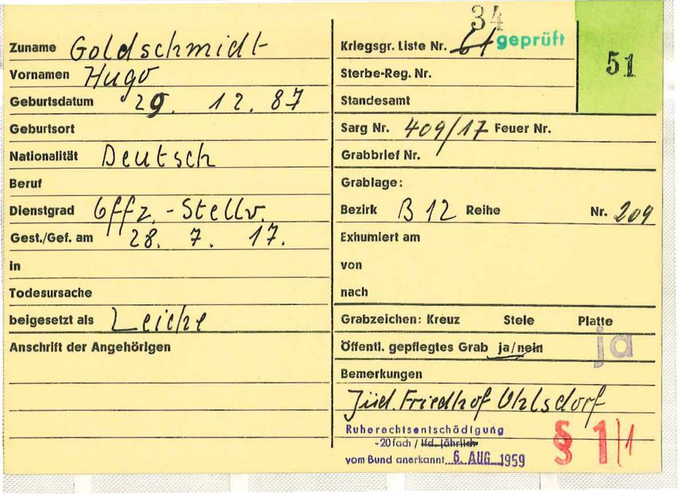 Zuname Goldschmidt
Vornamen Hugo
Geburtsdatum 29. 12. 87
Geburtsort
Nationalität Deutsch
Beruf
Dienstgrad Offz.-Stellv.
Gest./Gef. am 28. 7. 17.
in
Todesursache
beigesetzt als Leiche
Anschrift der Angehörigen
34
Kriegsgr. Liste Nr. 61 geprüft
51
Sterbe-Reg. Nr.
Standesamt
Sarg Nr. 409/17 Feuer Nr.
Grabbrief Nr.
Grablage:
Bezirk B 12 Reihe Nr. 209
Exhumiert am
von
nach
Grabzeichen: Kreuz Stele Platte
Öffentl. gepflegtes Grab ja/nein ja
Bemerkungen
Jüd. Friedhof Ohlsdorf
Ruherechtsentschädigung
-20fach / lfd. jährlich
vom Bund anerkannt 6. AUG. 1959
§ 1/1